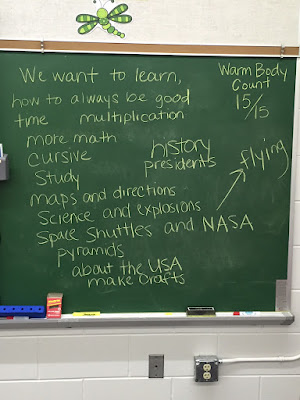 We want to learn,
how to always be good
time multiplication
more math
cursive
history
presidents
Study
maps and directions
Science and explosions
Space Shuttles and NASA
flying
pyramids
about the USA
make Crafts
Warm Body
Count
15/15